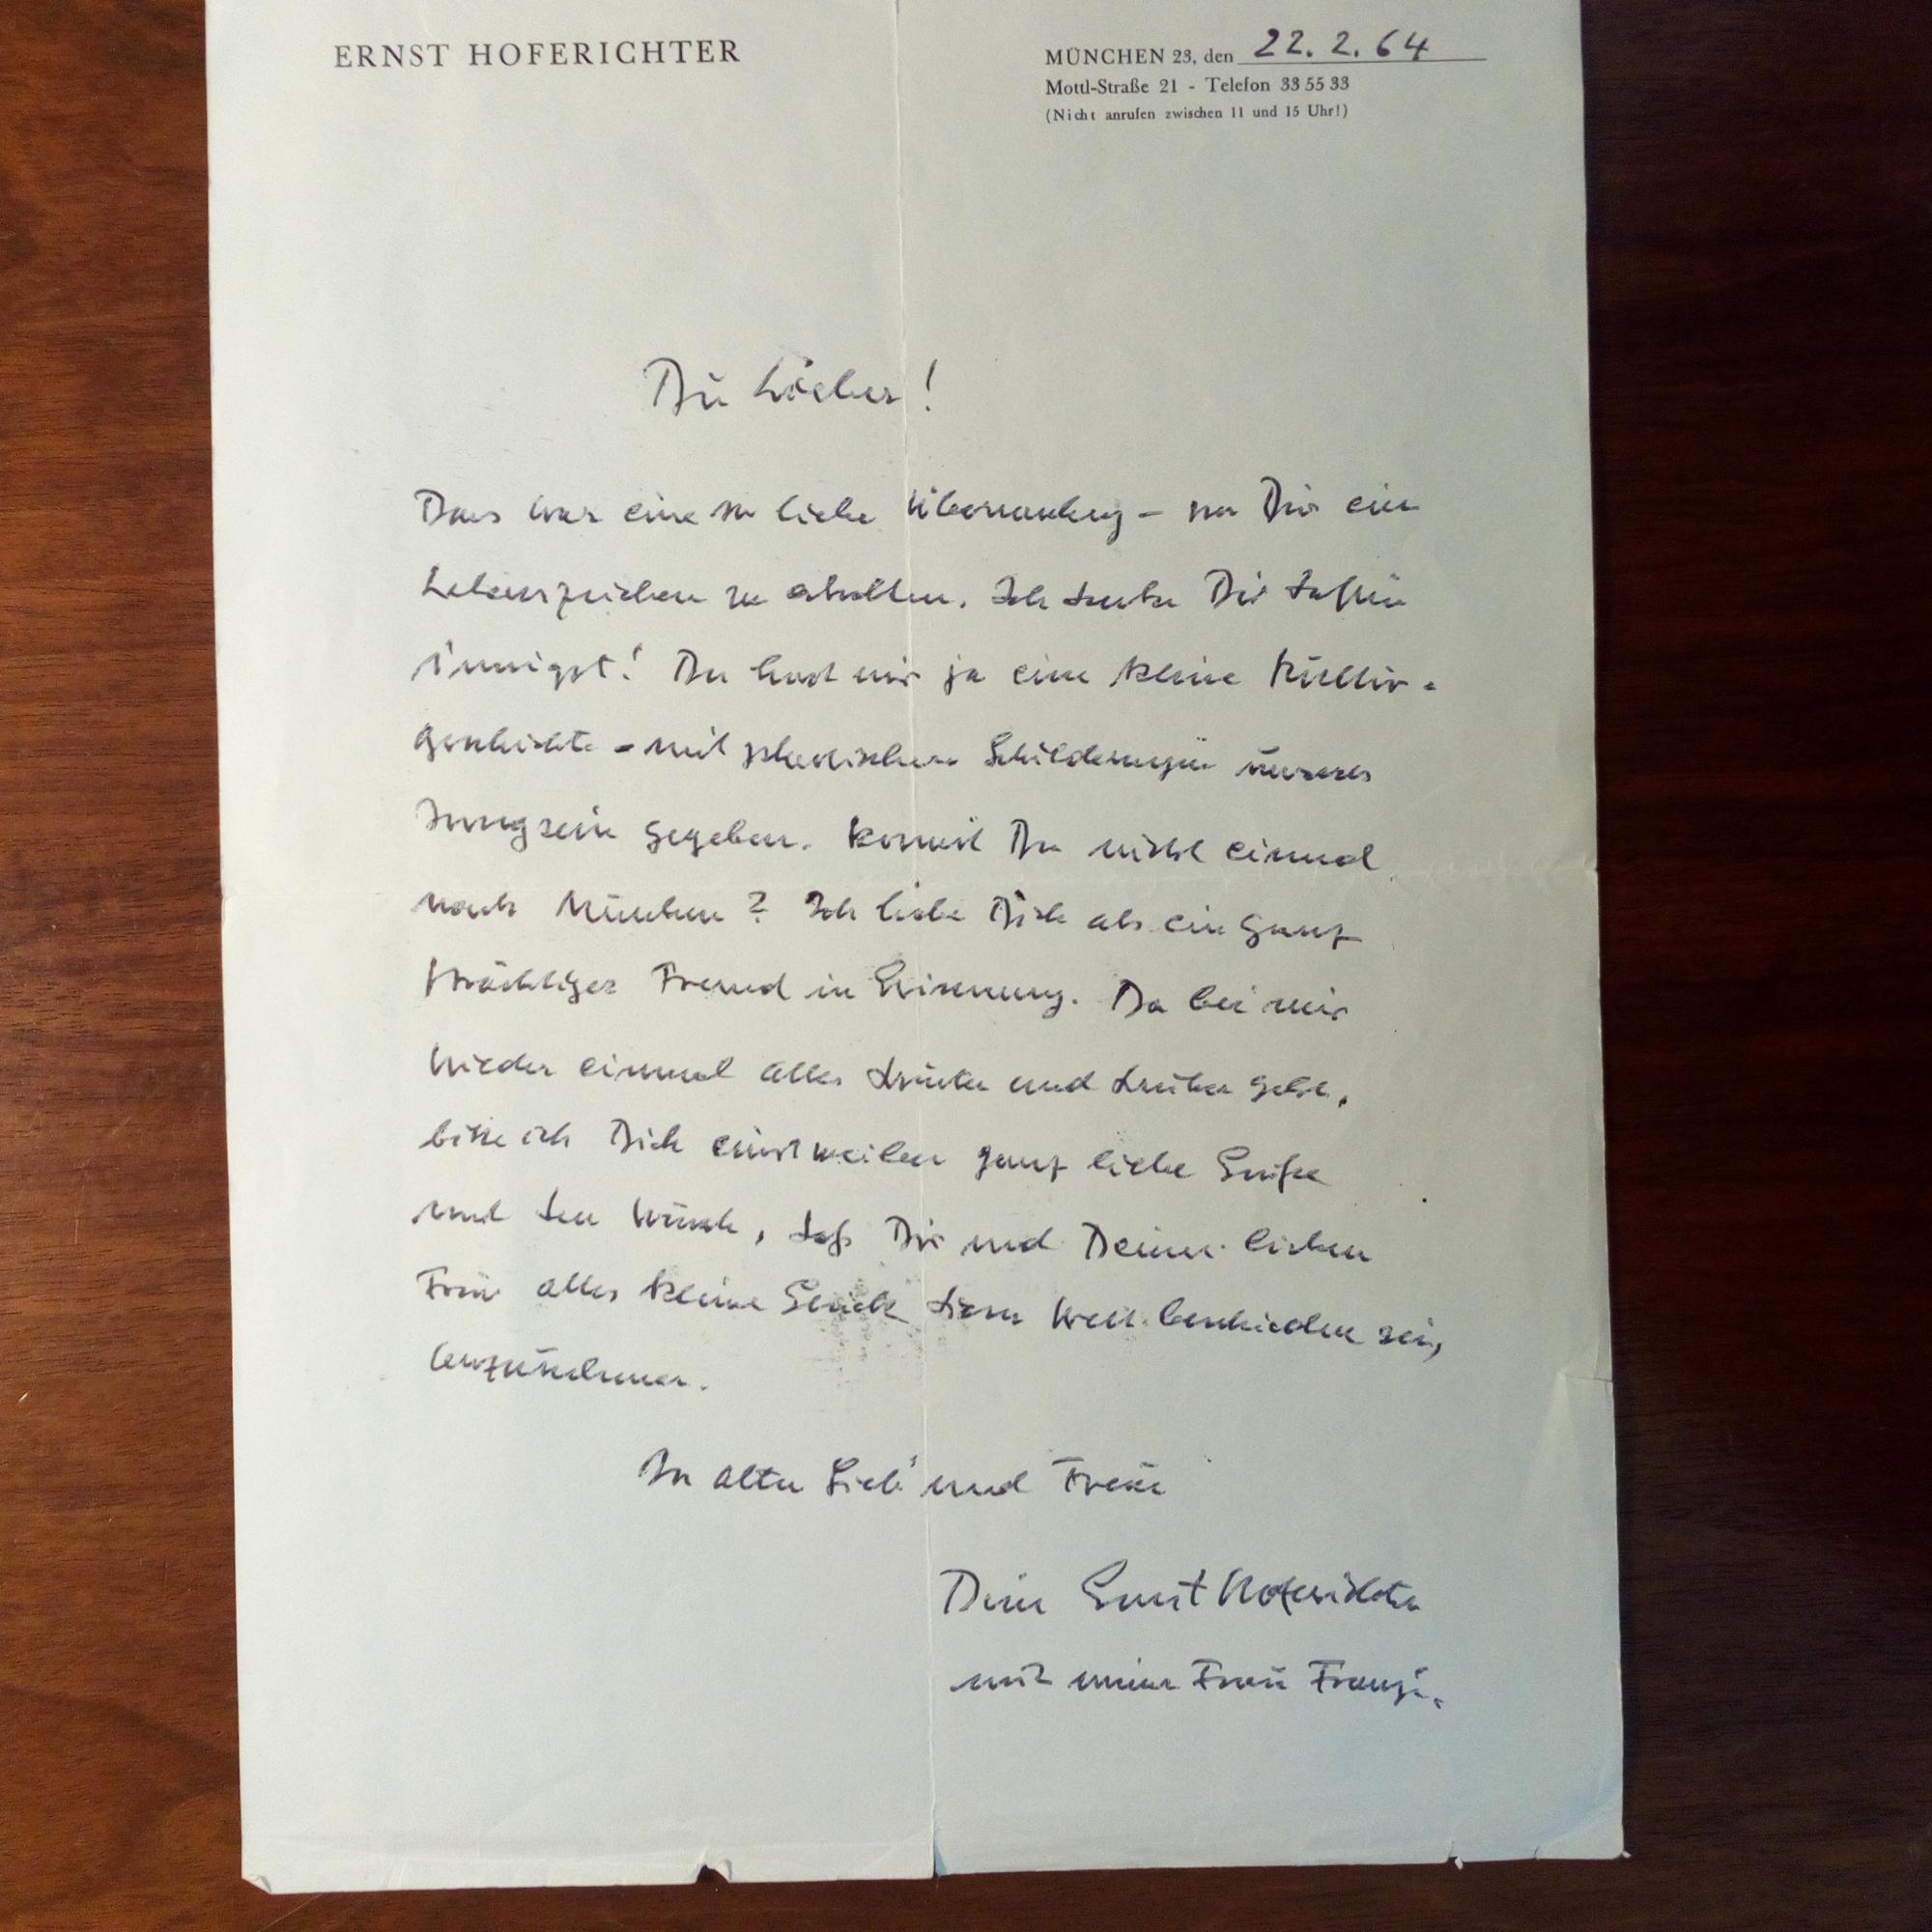 ERNST HOFERICHTER
MÜNCHEN 23, den 22. 2. 64
Mottl-Straße 21 - Telefon 33 55 33
(Nicht anrufen zwischen 11 und 15 Uhr!)
Du Lieber!
Das war eine so liebe Überraschung – von Dir ein
Lebenszeichen zu erhalten. Ich danke Dir dafür
innigst! Du hast mir ja eine kleine Kultur-
geschichte – mit Schilderungen unseres
Jungsein gegeben. Kommst Du nicht einmal
nach München? Ich habe Dich als ein ganz
prächtiger Freund in Erinnerung. Da bei mir
wieder einmal alles drunter und drüber geht,
bitte ich Dich einstweilen ganz liebe Grüße
und den Wunsch, daß Dir und Deiner lieben
Frau alles kleine Glück dieser Welt beschieden sei,
anzunehmen.
In alter Lieb' und Treue
Dein Ernst Hoferichter
mit meiner Frau Franzi.